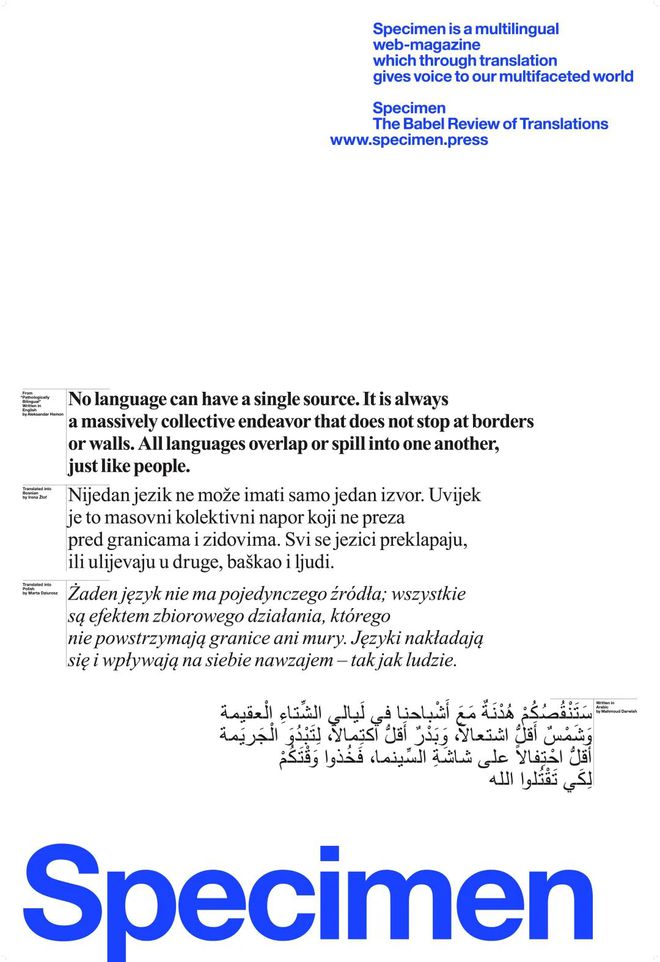 Specimen is a multilingual
web-magazine
which through translation
gives voice to our multifaceted world
Specimen
The Babel Review of Translations
www.specimen.press
From
"Pathologically
Bilingual"
Written in
English
by Aleksandar Hemon
No language can have a single source. It is always
a massively collective endeavor that does not stop at borders
or walls. All languages overlap or spill into one another,
just like people.
Translated into
Bosnian
by Irena Žlof
Nijedan jezik ne može imati samo jedan izvor. Uvijek
je to masovni kolektivni napor koji ne preza
pred granicama i zidovima. Svi se jezici preklapaju,
ili ulijevaju u druge, baškao i ljudi.
Translated into
Polish
by Marta Dziurosz
Żaden język nie ma pojedynczego źródła; wszystkie
są efektem zbiorowego działania, którego
nie powstrzymają granice ani mury. Języki nakładają
się i wpływają na siebie nawzajem – tak jak ludzie.
Written in
Arabic
by Mahmoud Darwish
سَتَنْقُصُكُمْ هُدْنَةٌ مَعَ أَشْباحِنا في لَيالي الشِّتاءِ الْعقيمة
وَشَمْسٌ أَقلُّ اشتعالاً، وَبَدْرٌ أَقلُّ اكتِمالاً، لِتَبْدُوَ الْجَريَمة
أَقلُّ احْتِفالاً على شاشةِ السِّينما، فَخُذوا وَقْتَكُمْ
لِكَي تَقْتُلوا الله
Specimen